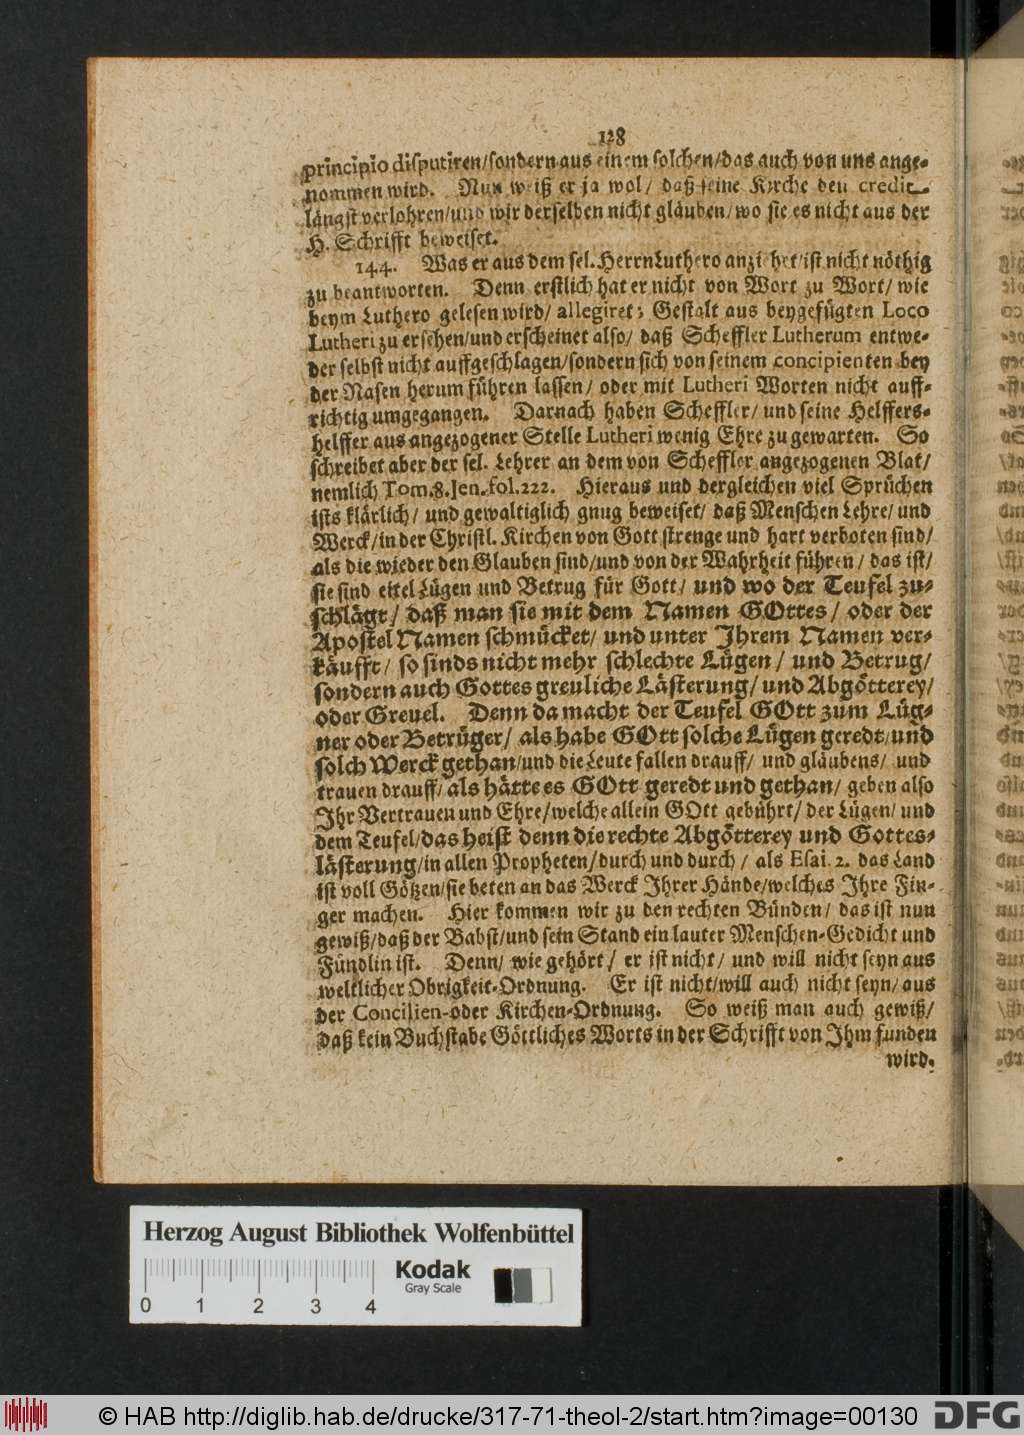 128
principio disputiren/sondern aus einem solchen/das auch von uns ange-
nommen wird. Nun weiß er ja wol/ daß seine Kirche den credit
längst verlohren/und wir derselben nicht gläuben/wo sie es nicht aus der
H. Schrifft beweiset.
144. Was er aus dem sel. Herrn Luthero anziehet/ist nicht nöthig
zu beantworten. Denn erstlich hat er nicht von Wort zu Wort/ wie
beym Luthero gelesen wird/ allegiret; Gestalt aus beygefügten Loco
Lutheri zu ersehen/und erscheinet also/ daß Scheffler Lutherum entwe-
der selbst nicht auffgeschlagen/sondern sich von seinem concipienten bey
der Nasen herum führen lassen/ oder mit Lutheri Worten nicht auff-
richtig umgegangen. Darnach haben Scheffler/ und seine Helffers-
helffer aus angezogener Stelle Lutheri wenig Ehre zu gewarten. So
schreibet aber der sel. Lehrer an dem von Scheffler angezogenen Blat/
nemlich Tom. 8. Jen. fol. 222. Hieraus und dergleichen viel Sprüchen
ists klärlich/ und gewaltiglich gnug beweiset/ daß Menschen Lehre/ und
Werck/in der Christl. Kirchen von Gott strenge und hart verboten sind/
als die wieder den Glauben sind/und von der Wahrheit führen/ das ist/
sie sind eitel Lügen und Betrug für Gott/ und wo der Teufel zu-
schlägt/ daß man sie mit dem Namen GOttes/ oder der
Apostel Namen schmücket/ und unter Ihrem Namen ver-
käufft/ so sinds nicht mehr schlechte Lügen/ und Betrug/
sondern auch Gottes greuliche Lästerung/ und Abgötterey/
oder Greuel. Denn da macht der Teufel GOtt zum Lüg-
ner oder Betrüger/ als habe GOtt solche Lügen geredt/und
solch Werck gethan/und die Leute fallen drauff/ und gläubens/ und
trauen drauff/ als hätte es GOtt geredt und gethan/ geben also
Ihr Vertrauen und Ehre/welche allein GOtt gebührt/ der Lügen/ und
dem Teufel/das heist denn die rechte Abgötterey und Gottes-
lästerung/in allen Propheten/durch und durch/ als Esai. 2. das Land
ist voll Götzen/sie beten an das Werck Ihrer Hände/welches Ihre Fin-
ger machen. Hier kommen wir zu den rechten Bünden/ das ist nun
gewiß/daß der Babst/und sein Stand ein lauter Menschen-Gedicht und
Fündlin ist. Denn/ wie gehört/ er ist nicht/ und will nicht seyn aus
weltlicher Obrigkeit-Ordnung. Er ist nicht/will auch nicht seyn/ aus
der Concilien- oder Kirchen-Ordnung. So weiß man auch gewiß/
daß kein Buchstabe Göttliches Worts in der Schrifft von Ihm funden
wird.
Herzog August Bibliothek Wolfenbüttel
Kodak
Gray Scale
0 1 2 3 4
© HAB http://diglib.hab.de/drucke/317-71-theol-2/start.htm?image=00130
DFG